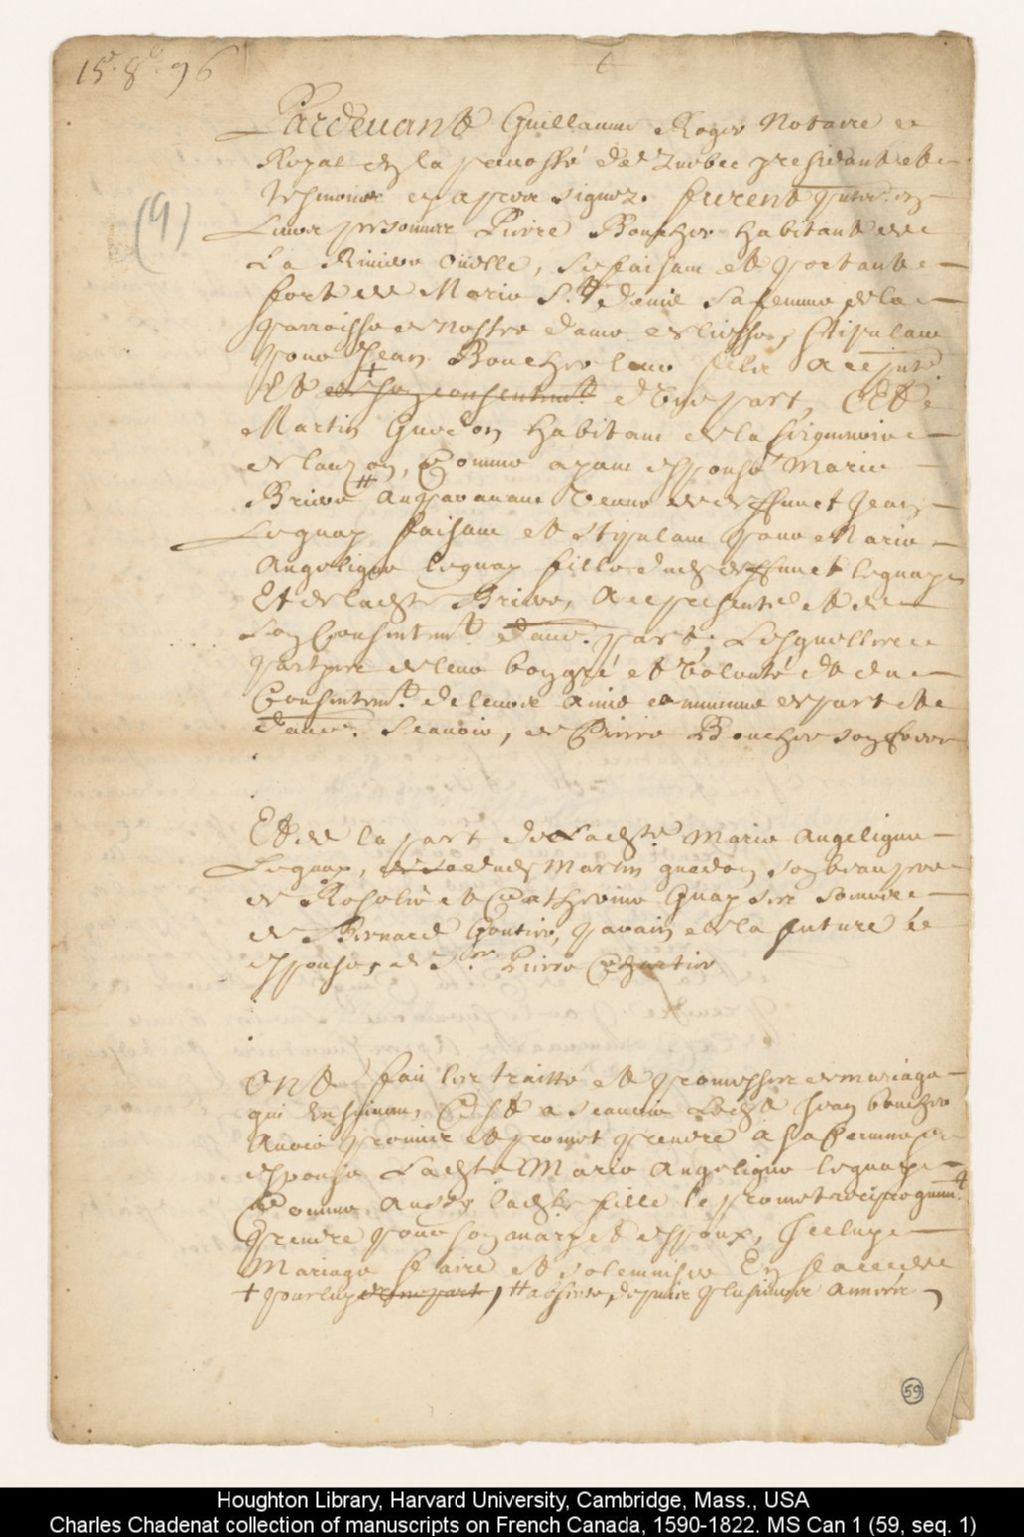 15e. 8e. 96
(9)
Pardevant Guillaume Roger Notaire
Royal en la prevosté de Quebec residant et
tesmoins cy apres signez. furent presens en
Leurs personnes Pierre Boucher habitant de
La Riviere oüelle, se faisant et portant
fort de Marie St. denis sa femme de la
parroisse de Nostre dame de liesse, stipulant
pour Jean Boucher leur filz a ce present
Et + de son consentemt. d'une part, ET
Martin Guedon habitant de la seigneurie
de lauzon, Comme ayant espousé Marie
Briere # auparavant veuve de deffunct Jean
Leguay faisant et stipulant pour Marie
Angelique leguay fille dudt. deffunct leguay
Et de ladte. Briere, A ce presente et de
Son Consentemt. d'autre part, Lesquelles
parties de leur bon gré et volonté et du
Consentemt. de leurs Amis communs de part et
d'autre. Scavoir, de Pierre Boucher son frere
Et de la part de Ladte. Marie Angelique
Leguay, dudt Martin guedon son beau pere
de Rosalie et Catherine Guay ses soeurs
de Bernard Gontier, parain de la future
espouse, et de Sr. Pierre Chartier
ONT fait les traitté et promesses de mariage
qui Ensuivent, C'est a scavoir Ledt Jean boucher
Avoir promis et promet prendre a sa femme
espouse Ladte Marie Angelique leguay
Comme Aussy ladte fille le promet reciproquemt.
prendre pour son mary et espoux, Iceluy
Mariage faire et solemniser En face de
+ pour luy d'une part, # absent depuis plusieurs années
59
Houghton Library, Harvard University, Cambridge, Mass., USA
Charles Chadenat collection of manuscripts on French Canada, 1590-1822. MS Can 1 (59, seq. 1)